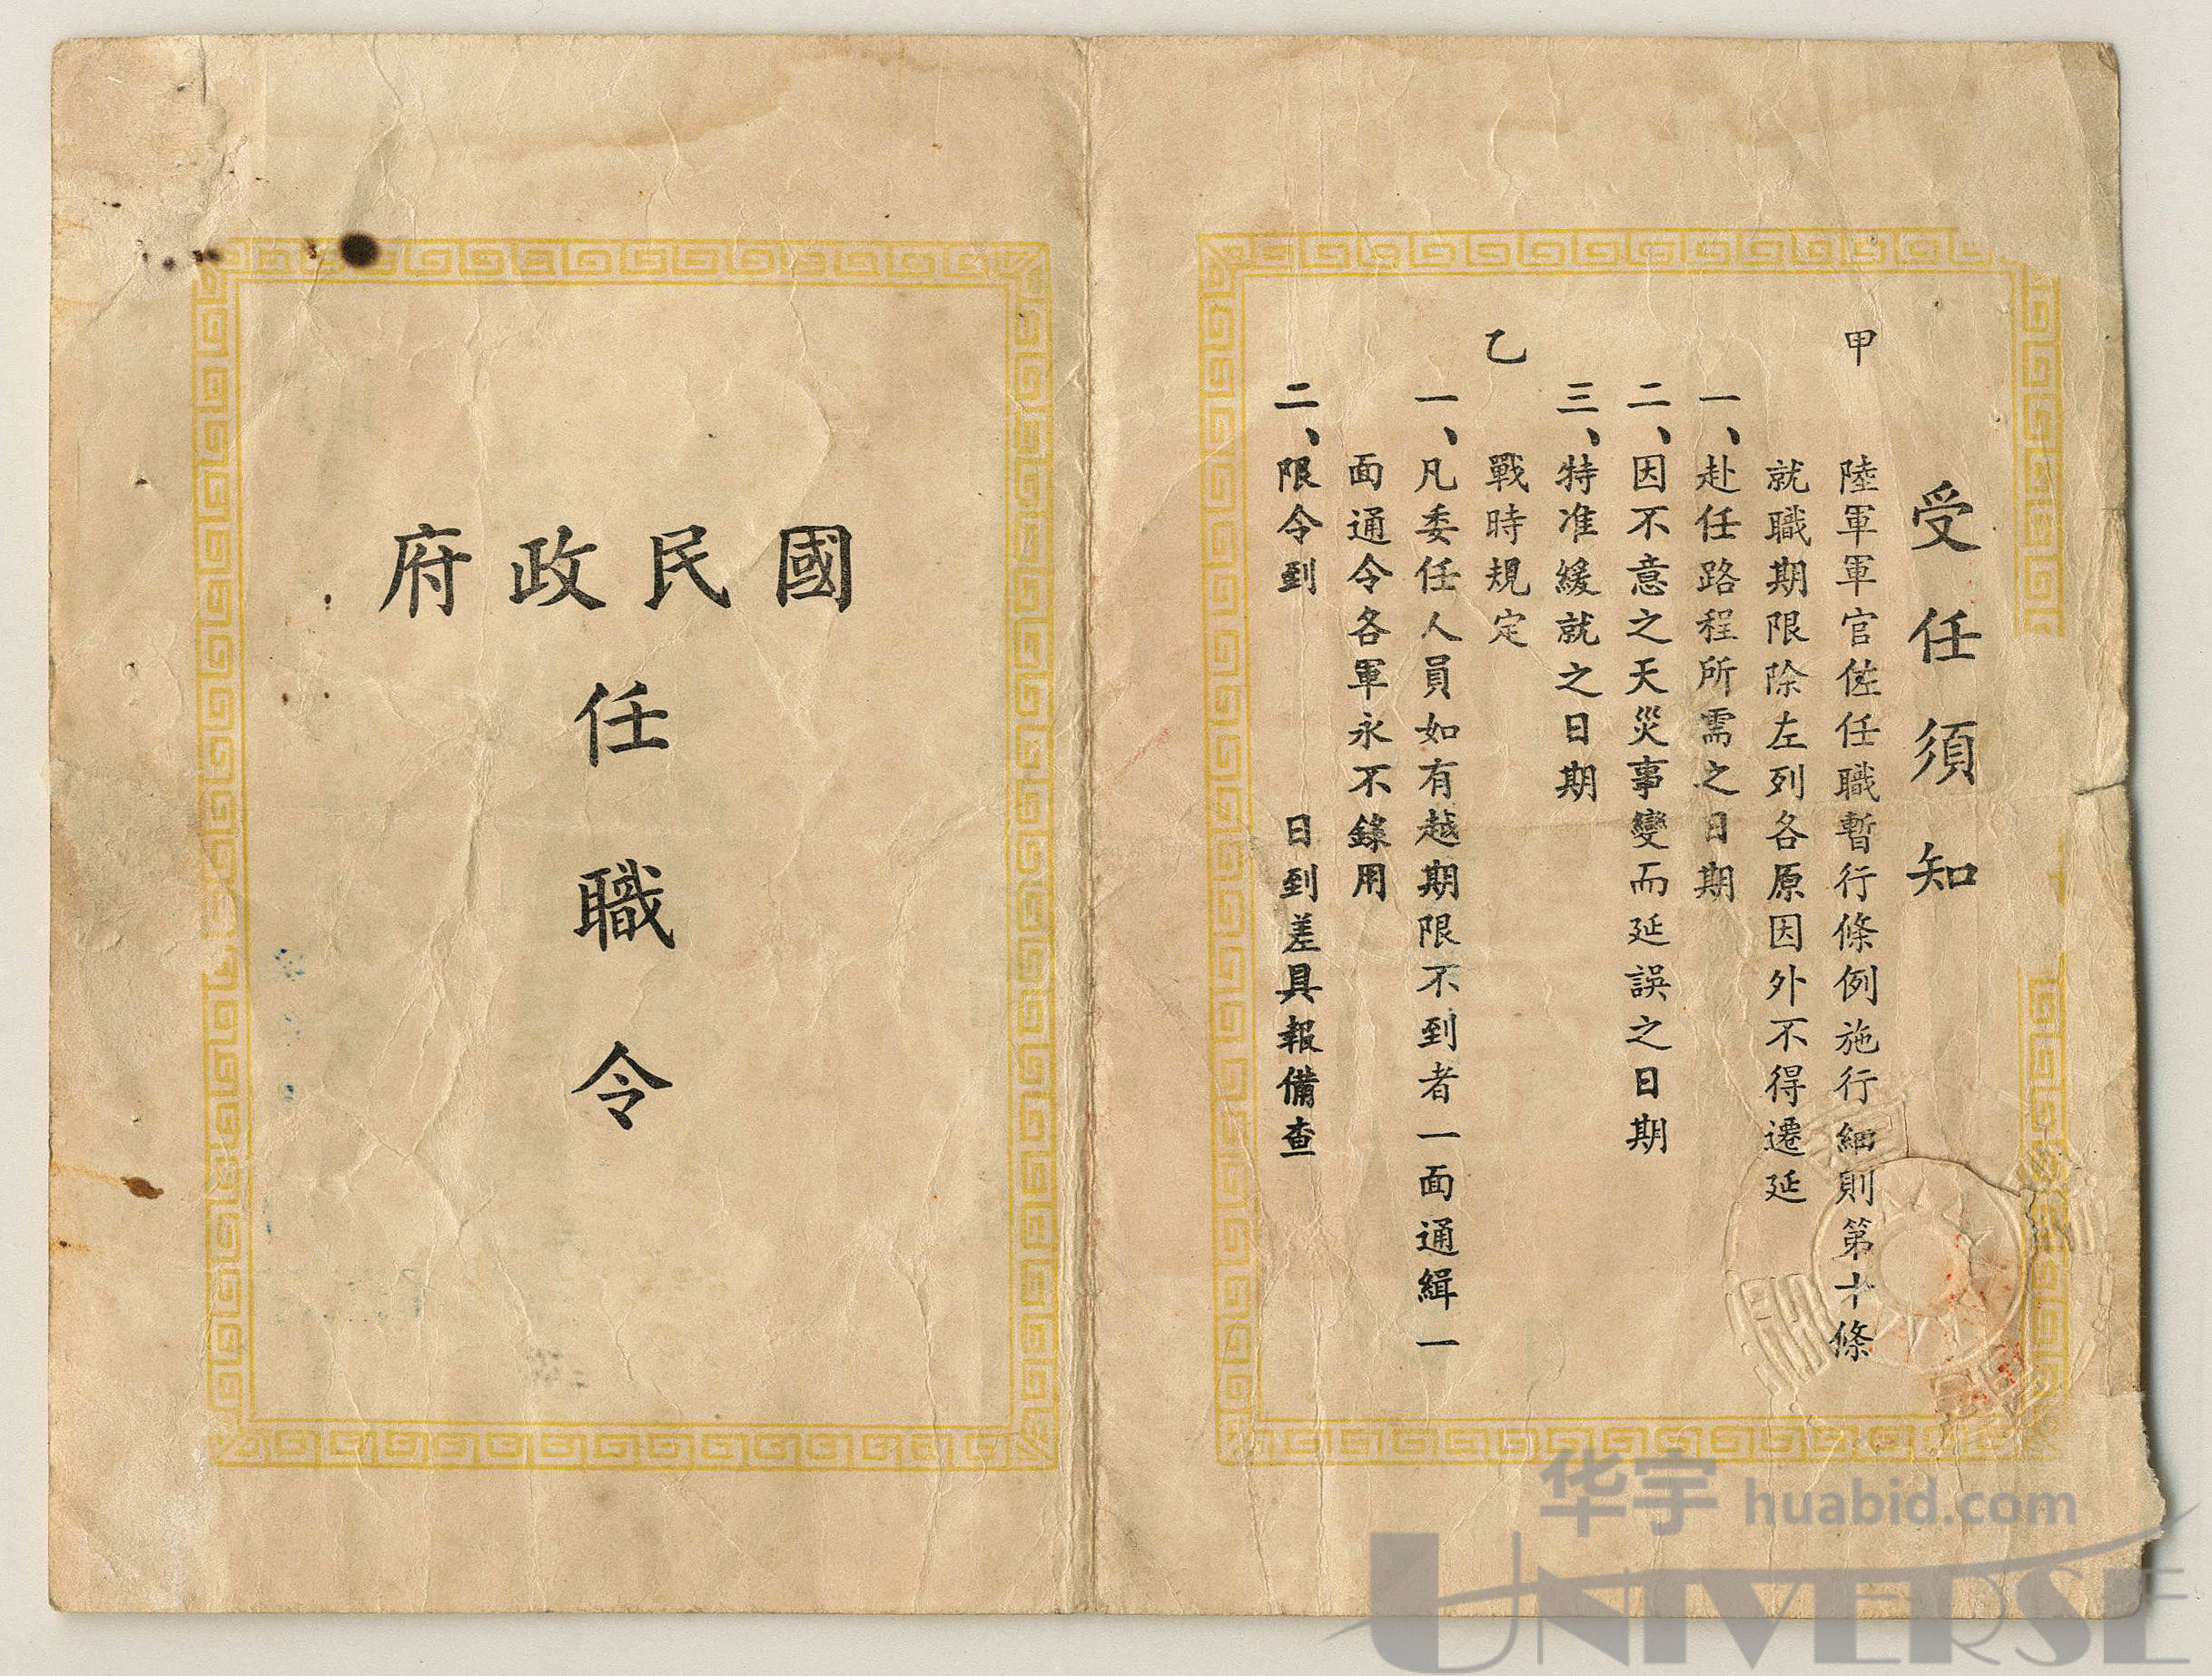 受任須知
甲
陸軍軍官佐任職暫行條例施行細則第十條
就職期限除左列各原因外不得遷延
一、赴任路程所需之日期
二、因不意之天災事變而延誤之日期
三、特准緩就之日期
乙
戰時規定
一、凡委任人員如有越期限不到者一面通緝一
面通令各軍永不錄用
二、限令到　　　　日到差具報備查
國民政府
任職令
华宇 huabid.com
UNIVERSE